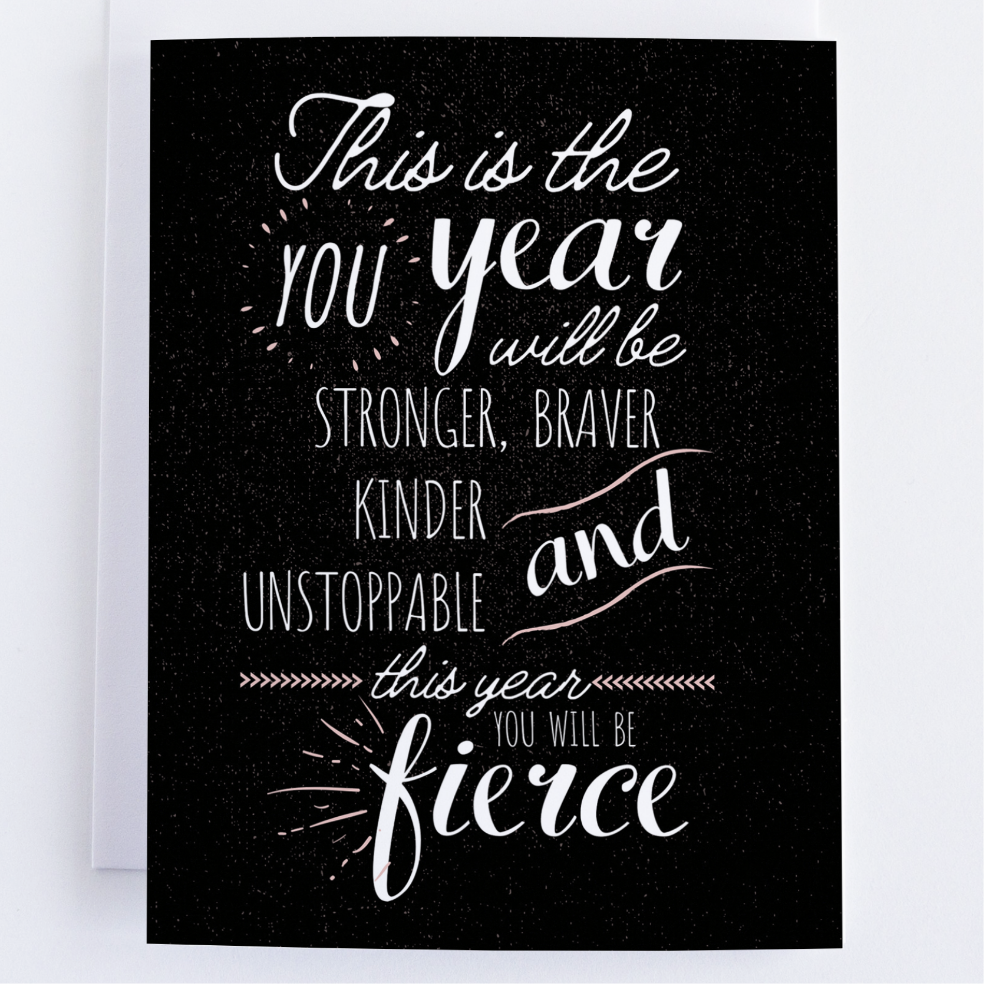 This is the
YOU year
will be
STRONGER, BRAVER
KINDER and
UNSTOPPABLE
this year
YOU WILL BE
fierce